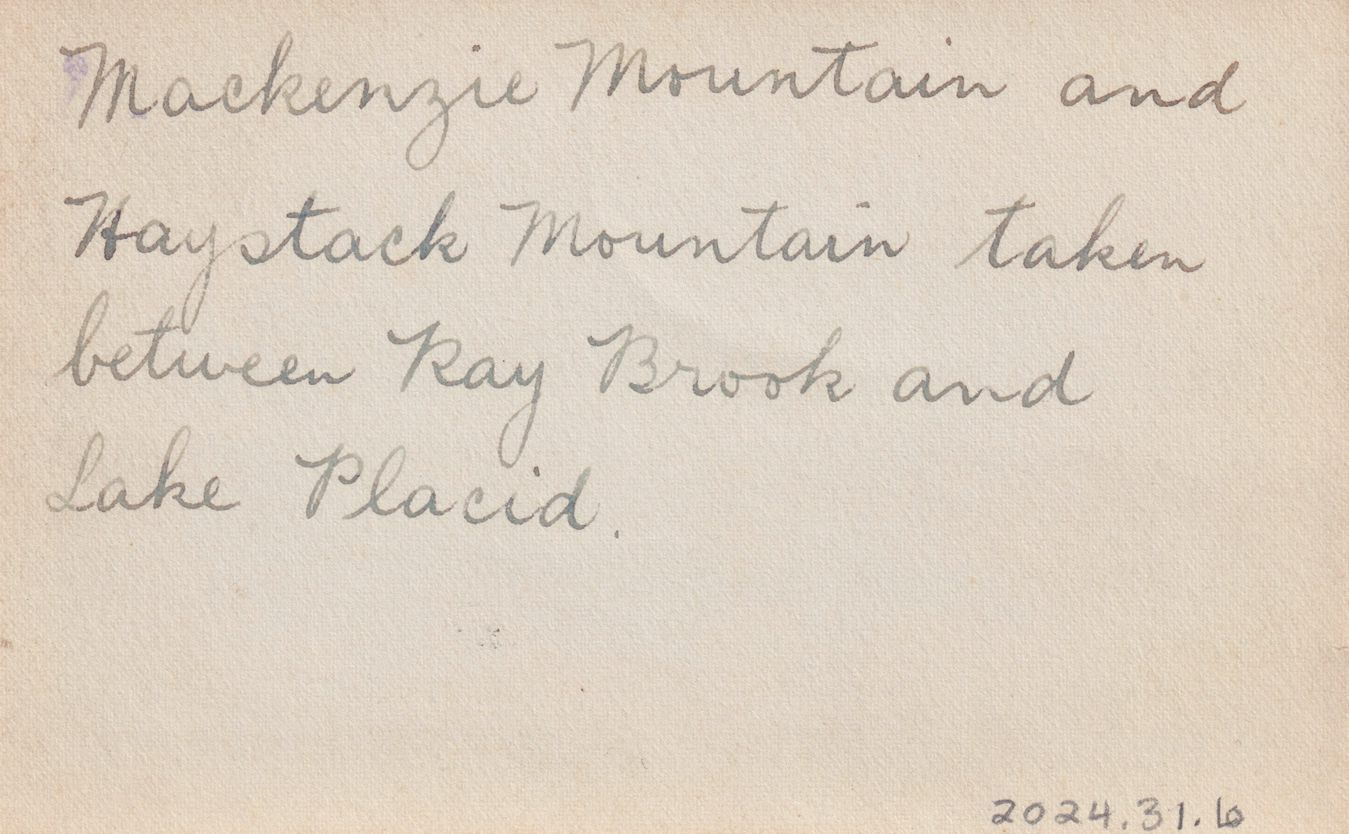 Mackenzie Mountain and
Haystack Mountain taken
between Ray Brook and
Lake Placid.
2024.31.6